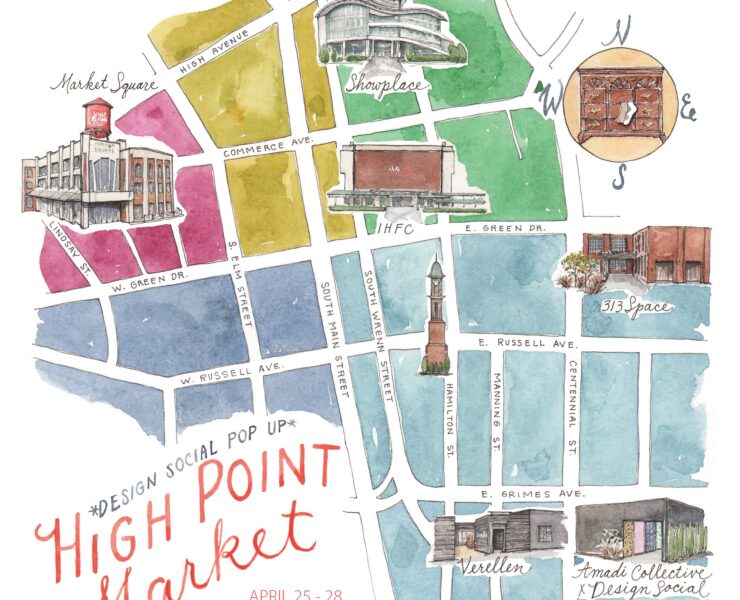 HIGH AVENUE
N
Market Square
Showplace
W
E
S
COMMERCE AVE.
IHFC
E. GREEN DR.
LINDSAY ST.
S. ELM STREET
W. GREEN DR.
SOUTH MAIN STREET
SOUTH WRENN STREET
313 Space
E. RUSSELL AVE.
W. RUSSELL AVE.
HAMILTON ST.
MANNING ST.
CENTENNIAL ST.
*DESIGN SOCIAL POP UP*
HIGH POINT
Market
APRIL 25 - 28
E. GRIMES AVE.
Verellen
Amadi Collective
x Design Social